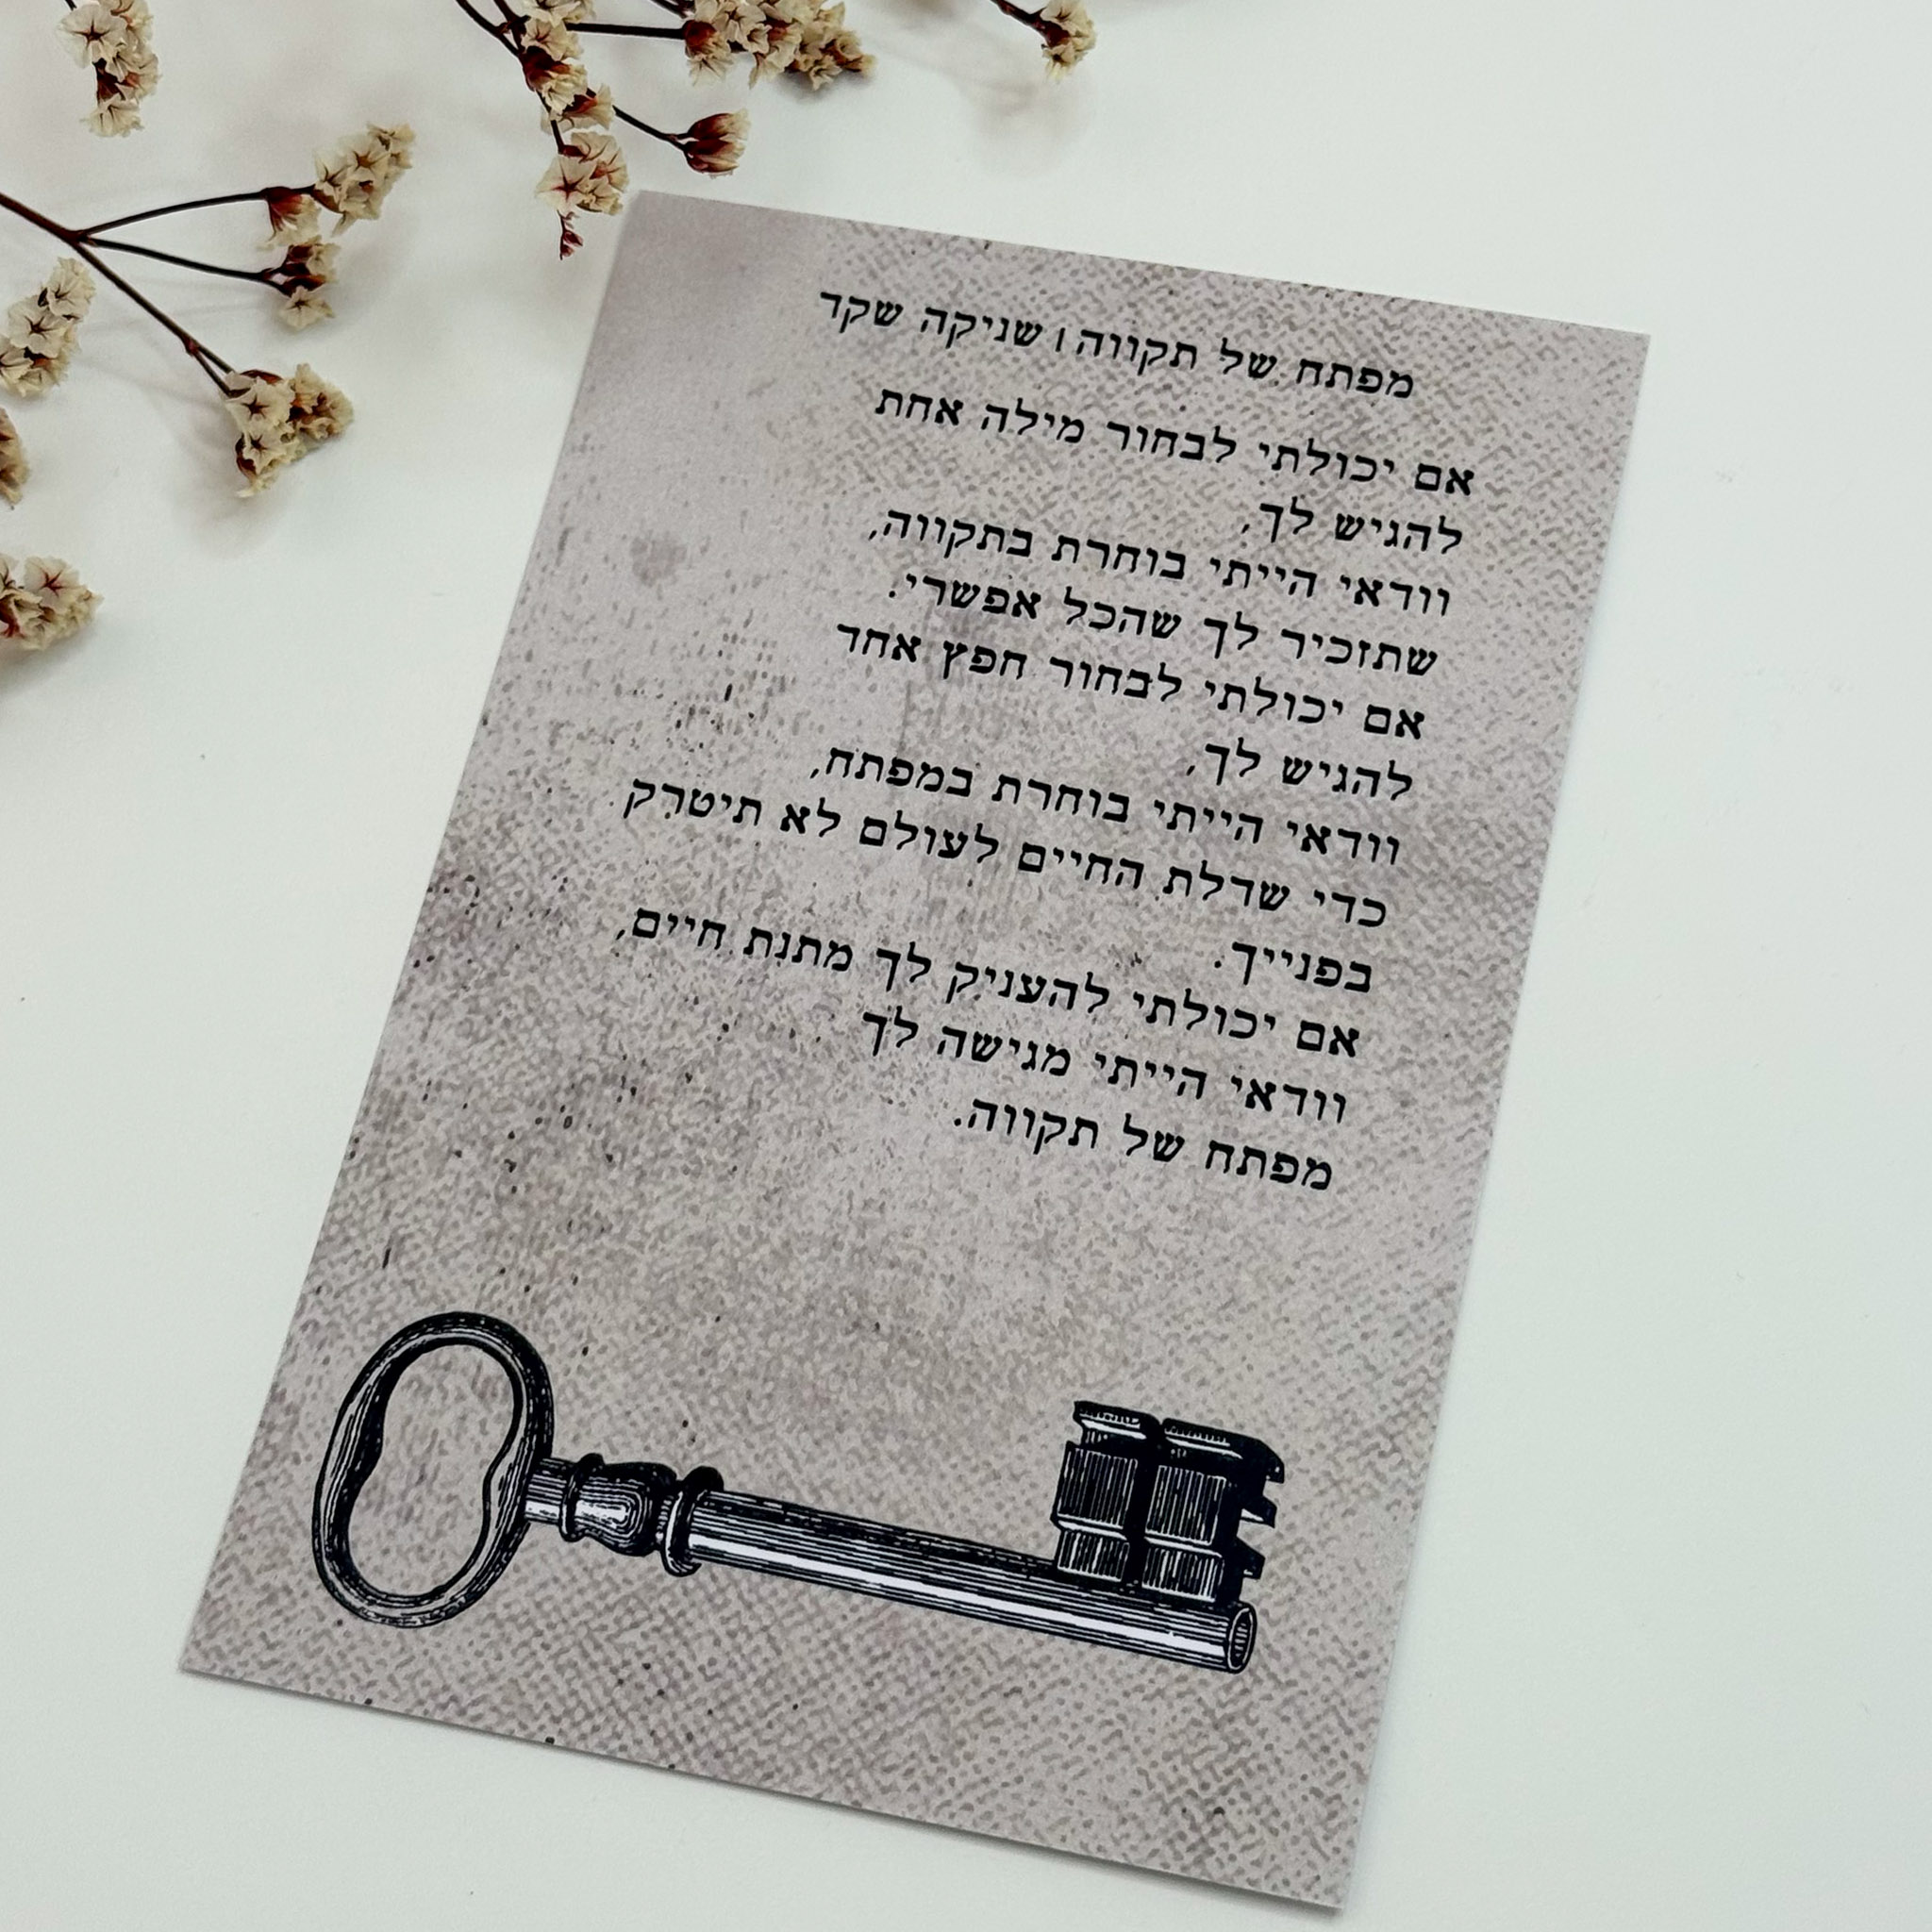 מפתח של תקווה | שניקה שקד
אם יכולתי לבחור מילה אחת
להגיש לך,
וודאי הייתי בוחרת בתקווה,
שתזכיר לך שהכל אפשרי.
אם יכולתי לבחור חפץ אחד
להגיש לך,
וודאי הייתי בוחרת במפתח,
כדי שדלת החיים לעולם לא תיטרק
בפנייך.
אם יכולתי להעניק לך מתנת חיים,
וודאי הייתי מגישה לך
מפתח של תקווה.